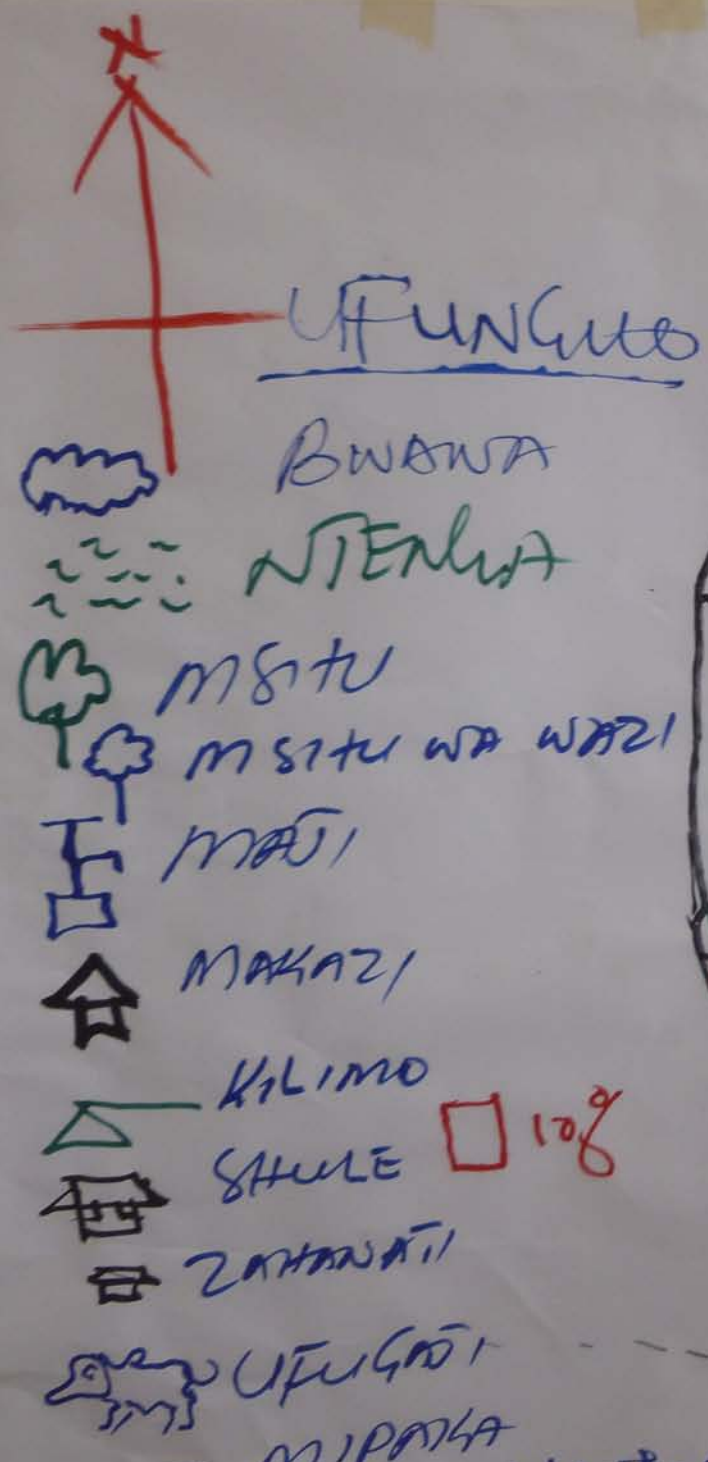 N
UFUNGUO
BWAWA
NTENGA
MSITU
MSITU WA WAZI
MAJI
MAKAZI
KILIMO
10%
SHULE
ZAHANATI
UFUGAJI
MIPAKA